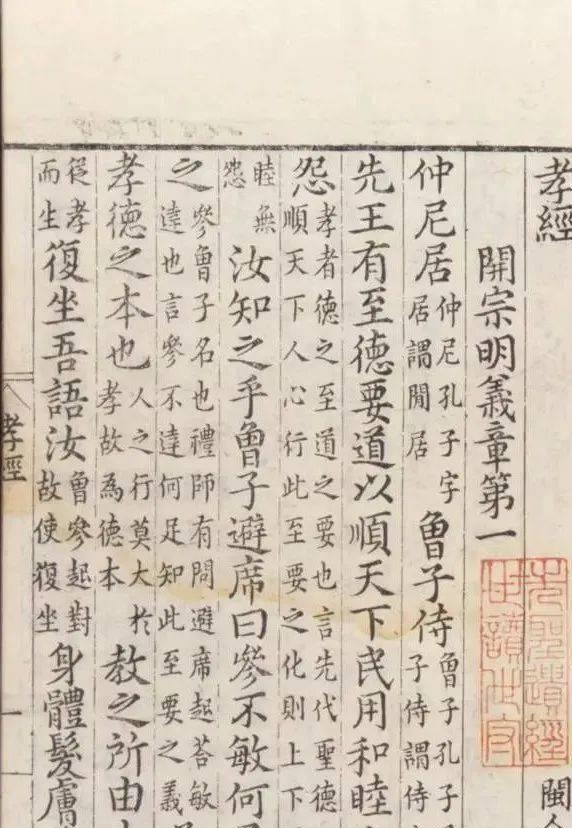 孝經
閩
開宗明義章第一
仲尼居
仲尼孔子字
居謂閒居
魯子侍
魯子孔子
子侍謂侍
先王有至德要道以順天下民用和睦
怨
孝者德之至道之要也言先代聖德
順天下人心行此至要之化則上下
睦無
怨
汝知之乎魯子避席曰參不敏何
之
參魯子名也禮師有問避席起荅敏
達也言參不達何足知此至要之義
孝德之本也
人之行莫大於
孝故為德本
教之所由
從孝
而生
復坐吾語汝
魯參起對
故使復坐
身體髮膚
孝經
一
先聖遺經